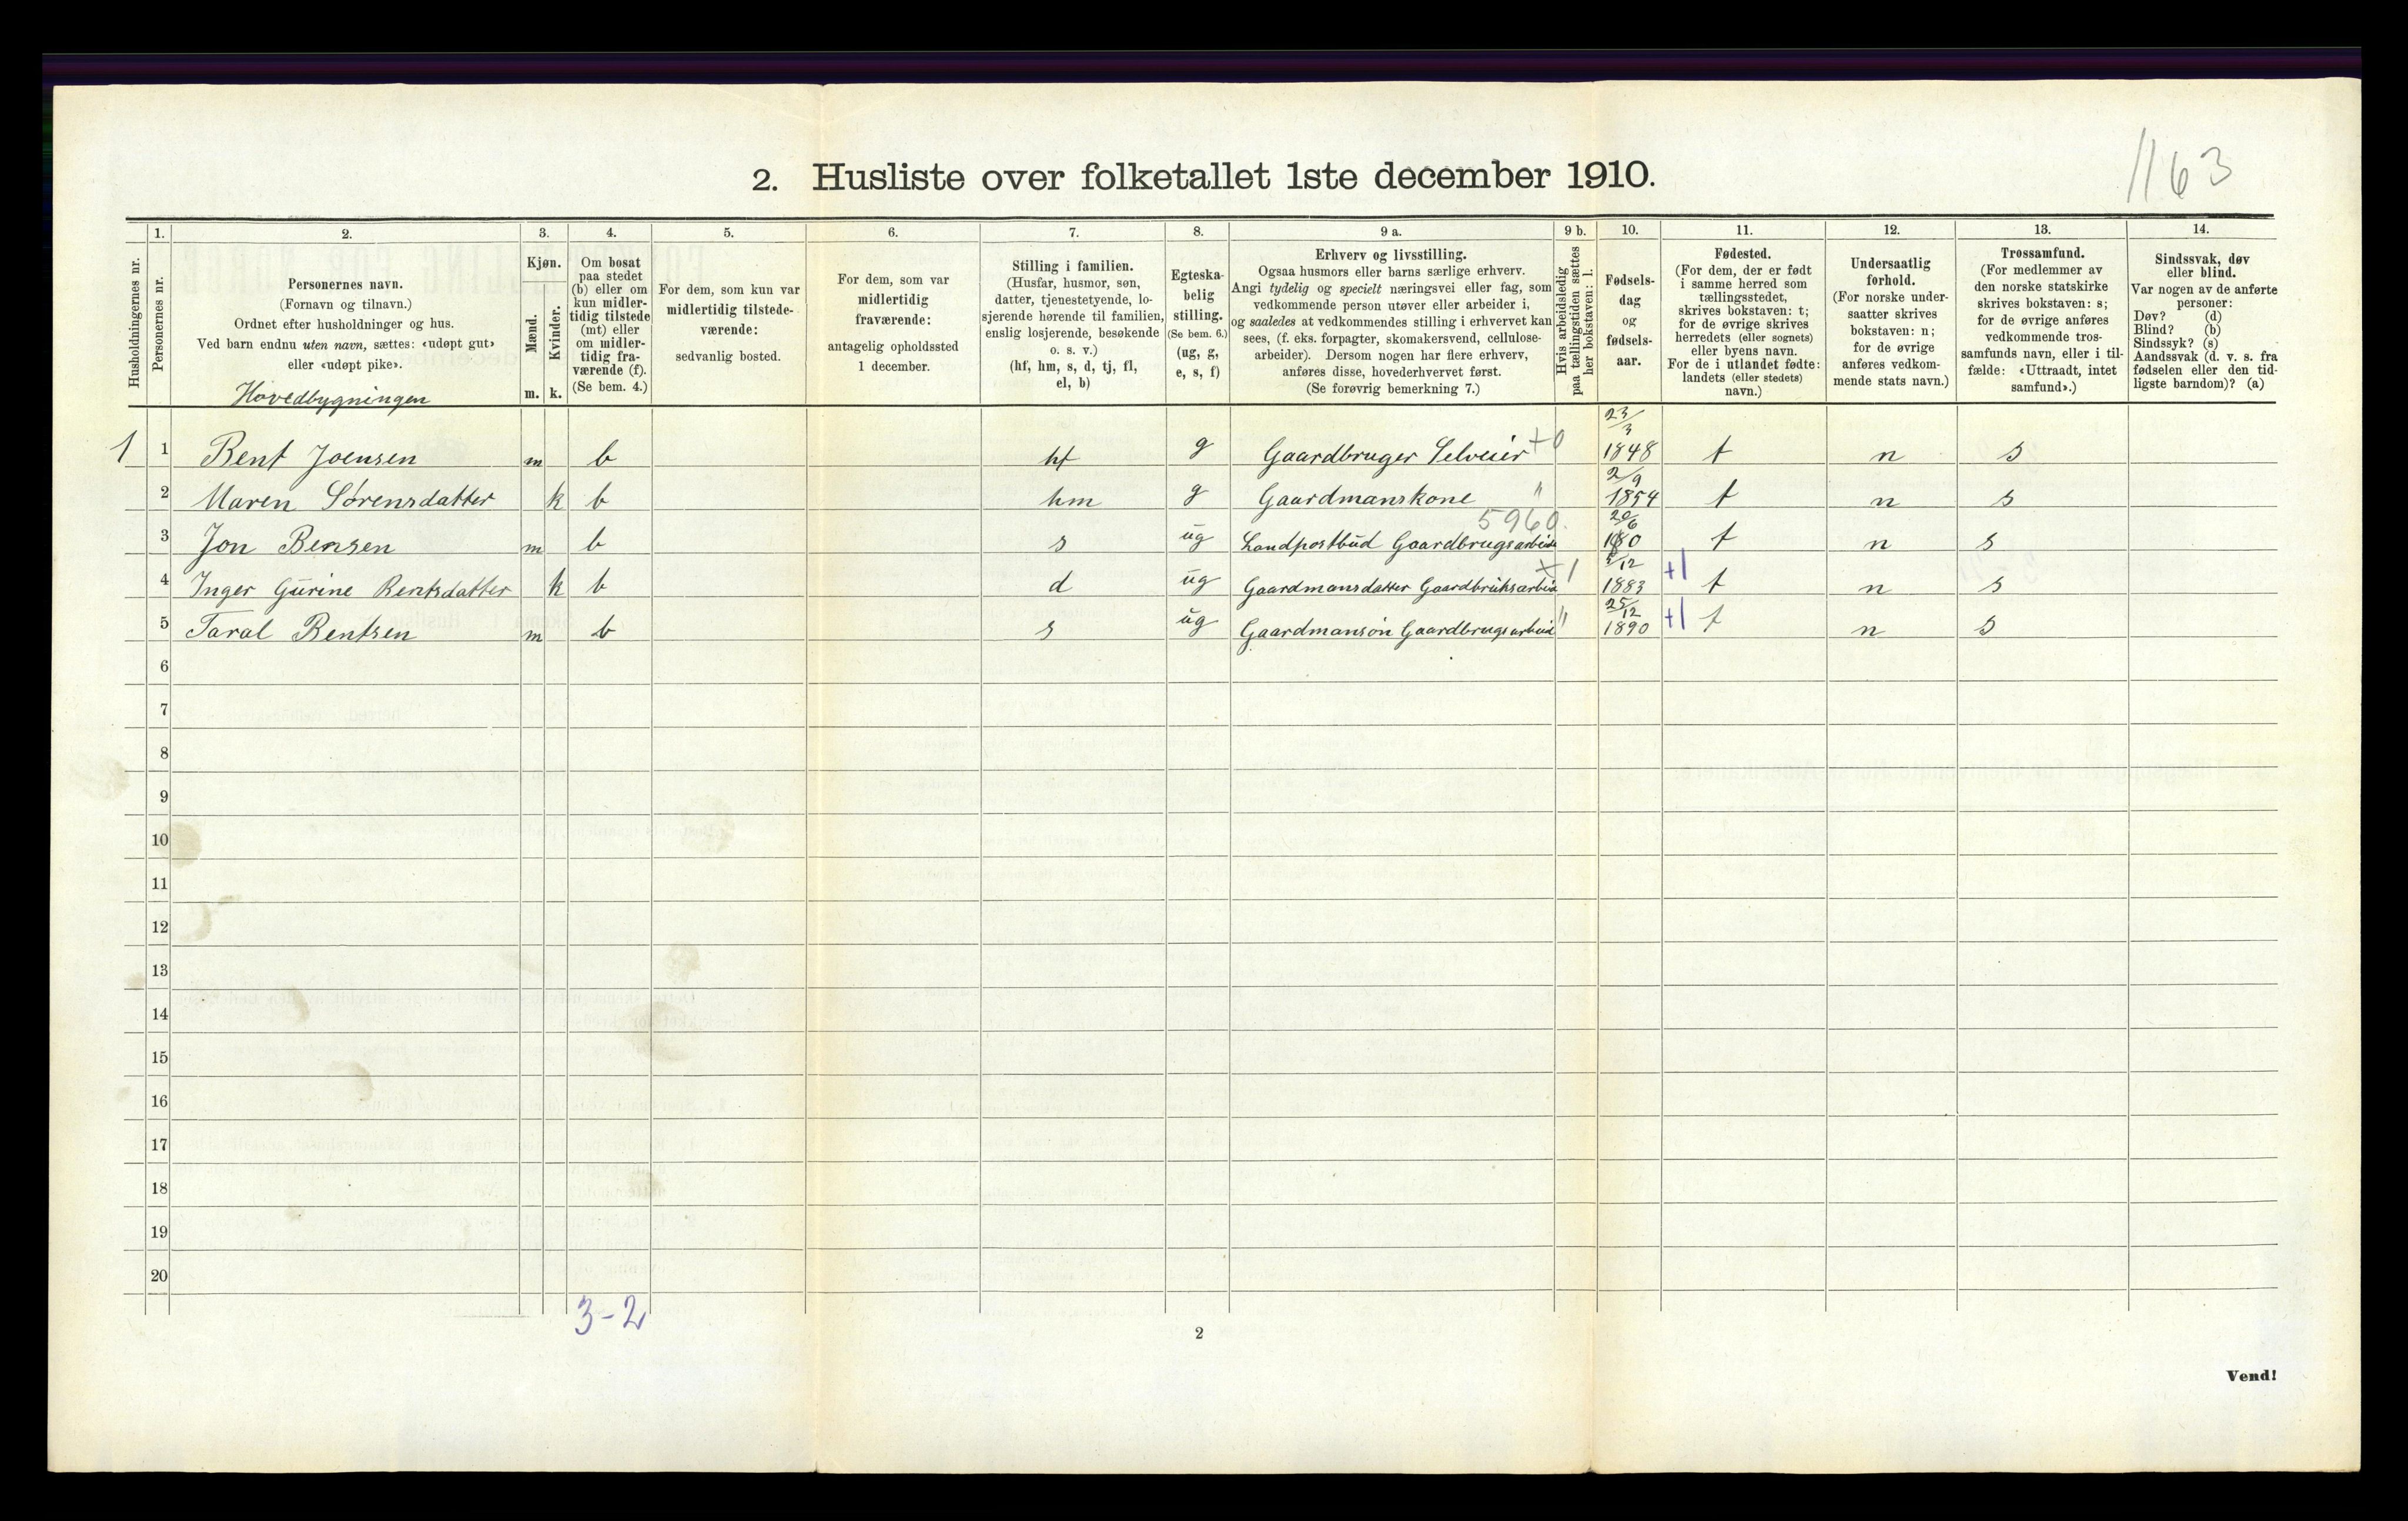 1163
2. Husliste over folketallet 1ste december 1910.
Husholdningernes nr.
1.
Personernes nr.
2.
Personernes navn.
(Fornavn og tilnavn.)
Ordnet efter husholdninger og hus.
Ved barn endnu uten navn, sættes: «udøpt gut»
eller «udøpt pike».
Hovedbygningen
3.
Kjøn.
Mænd.
Kvinder.
m. k.
4.
Om bosat
paa stedet
(b) eller om
kun midler-
tidig tilstede
(mt) eller
om midler-
tidig fra-
værende (f).
(Se bem. 4.)
5.
For dem, som kun var
midlertidig tilstede-
værende:
sedvanlig bosted.
6.
For dem, som var
midlertidig
fraværende:
antagelig opholdssted
1 december.
7.
Stilling i familien.
(Husfar, husmor, søn,
datter, tjenestetyende, lo-
sjerende hørende til familien,
enslig losjerende, besøkende
o. s. v.)
(hf, hm, s, d, tj, fl,
el, b)
8.
Egteska-
belig
stilling.
(Se bem. 6.)
(ug, g,
e, s, f)
9 a.
Erhverv og livsstilling.
Ogsaa husmors eller barns særlige erhverv.
Angi tydelig og specielt næringsvei eller fag, som
vedkommende person utøver eller arbeider i,
og saaledes at vedkommendes stilling i erhvervet kan
sees, (f. eks. forpagter, skomakersvend, cellulose-
arbeider). Dersom nogen har flere erhverv,
anføres disse, hovederhvervet først.
(Se forøvrig bemerkning 7.)
9 b.
Hvis arbeidsledig
paa tællingstiden sættes
her bokstaven: l.
10.
Fødsels-
dag
og
fødsels-
aar.
11.
Fødested.
(For dem, der er født
i samme herred som
tællingsstedet,
skrives bokstaven: t;
for de øvrige skrives
herredets (eller sognets)
eller byens navn.
For de i utlandet fødte:
landets (eller stedets)
navn.)
12.
Undersaatlig
forhold.
(For norske under-
saatter skrives
bokstaven: n;
for de øvrige
anføres vedkom-
mende stats navn.)
13.
Trossamfund.
(For medlemmer av
den norske statskirke
skrives bokstaven: s;
for de øvrige anføres
vedkommende tros-
samfunds navn, eller i til-
fælde: «Uttraadt, intet
samfund».)
14.
Sindssvak, døv
eller blind.
Var nogen av de anførte
personer:
Døv? (d)
Blind? (b)
Sindssyk? (s)
Aandssvak (d. v. s. fra
fødselen eller den tid-
ligste barndom)? (a)
1 1 Bent Joensen m b hf g Gaardbruger Selveier +0 23/3 1848 t n s
2 Maren Sørensdatter k b hm g Gaardmanskone " 2/9 1854 t n s
3 Jon Bensen m b s ug Landpostbud Gaardbrugsarbeide 5960. 20/6 1880 t n s
4 Inger Gurine Bentsdatter k b d ug Gaardmansdatter Gaardbruksarbeid +1 /12 1883 +1 t n s
5 Taral Bentsen m b s ug Gaardmansøn Gaardbrugsarbeid " 25/12 1890 +1 t n s
6
7
8
9
10
11
12
13
14
15
16
17
18
19
20
3-2
2
Vend!